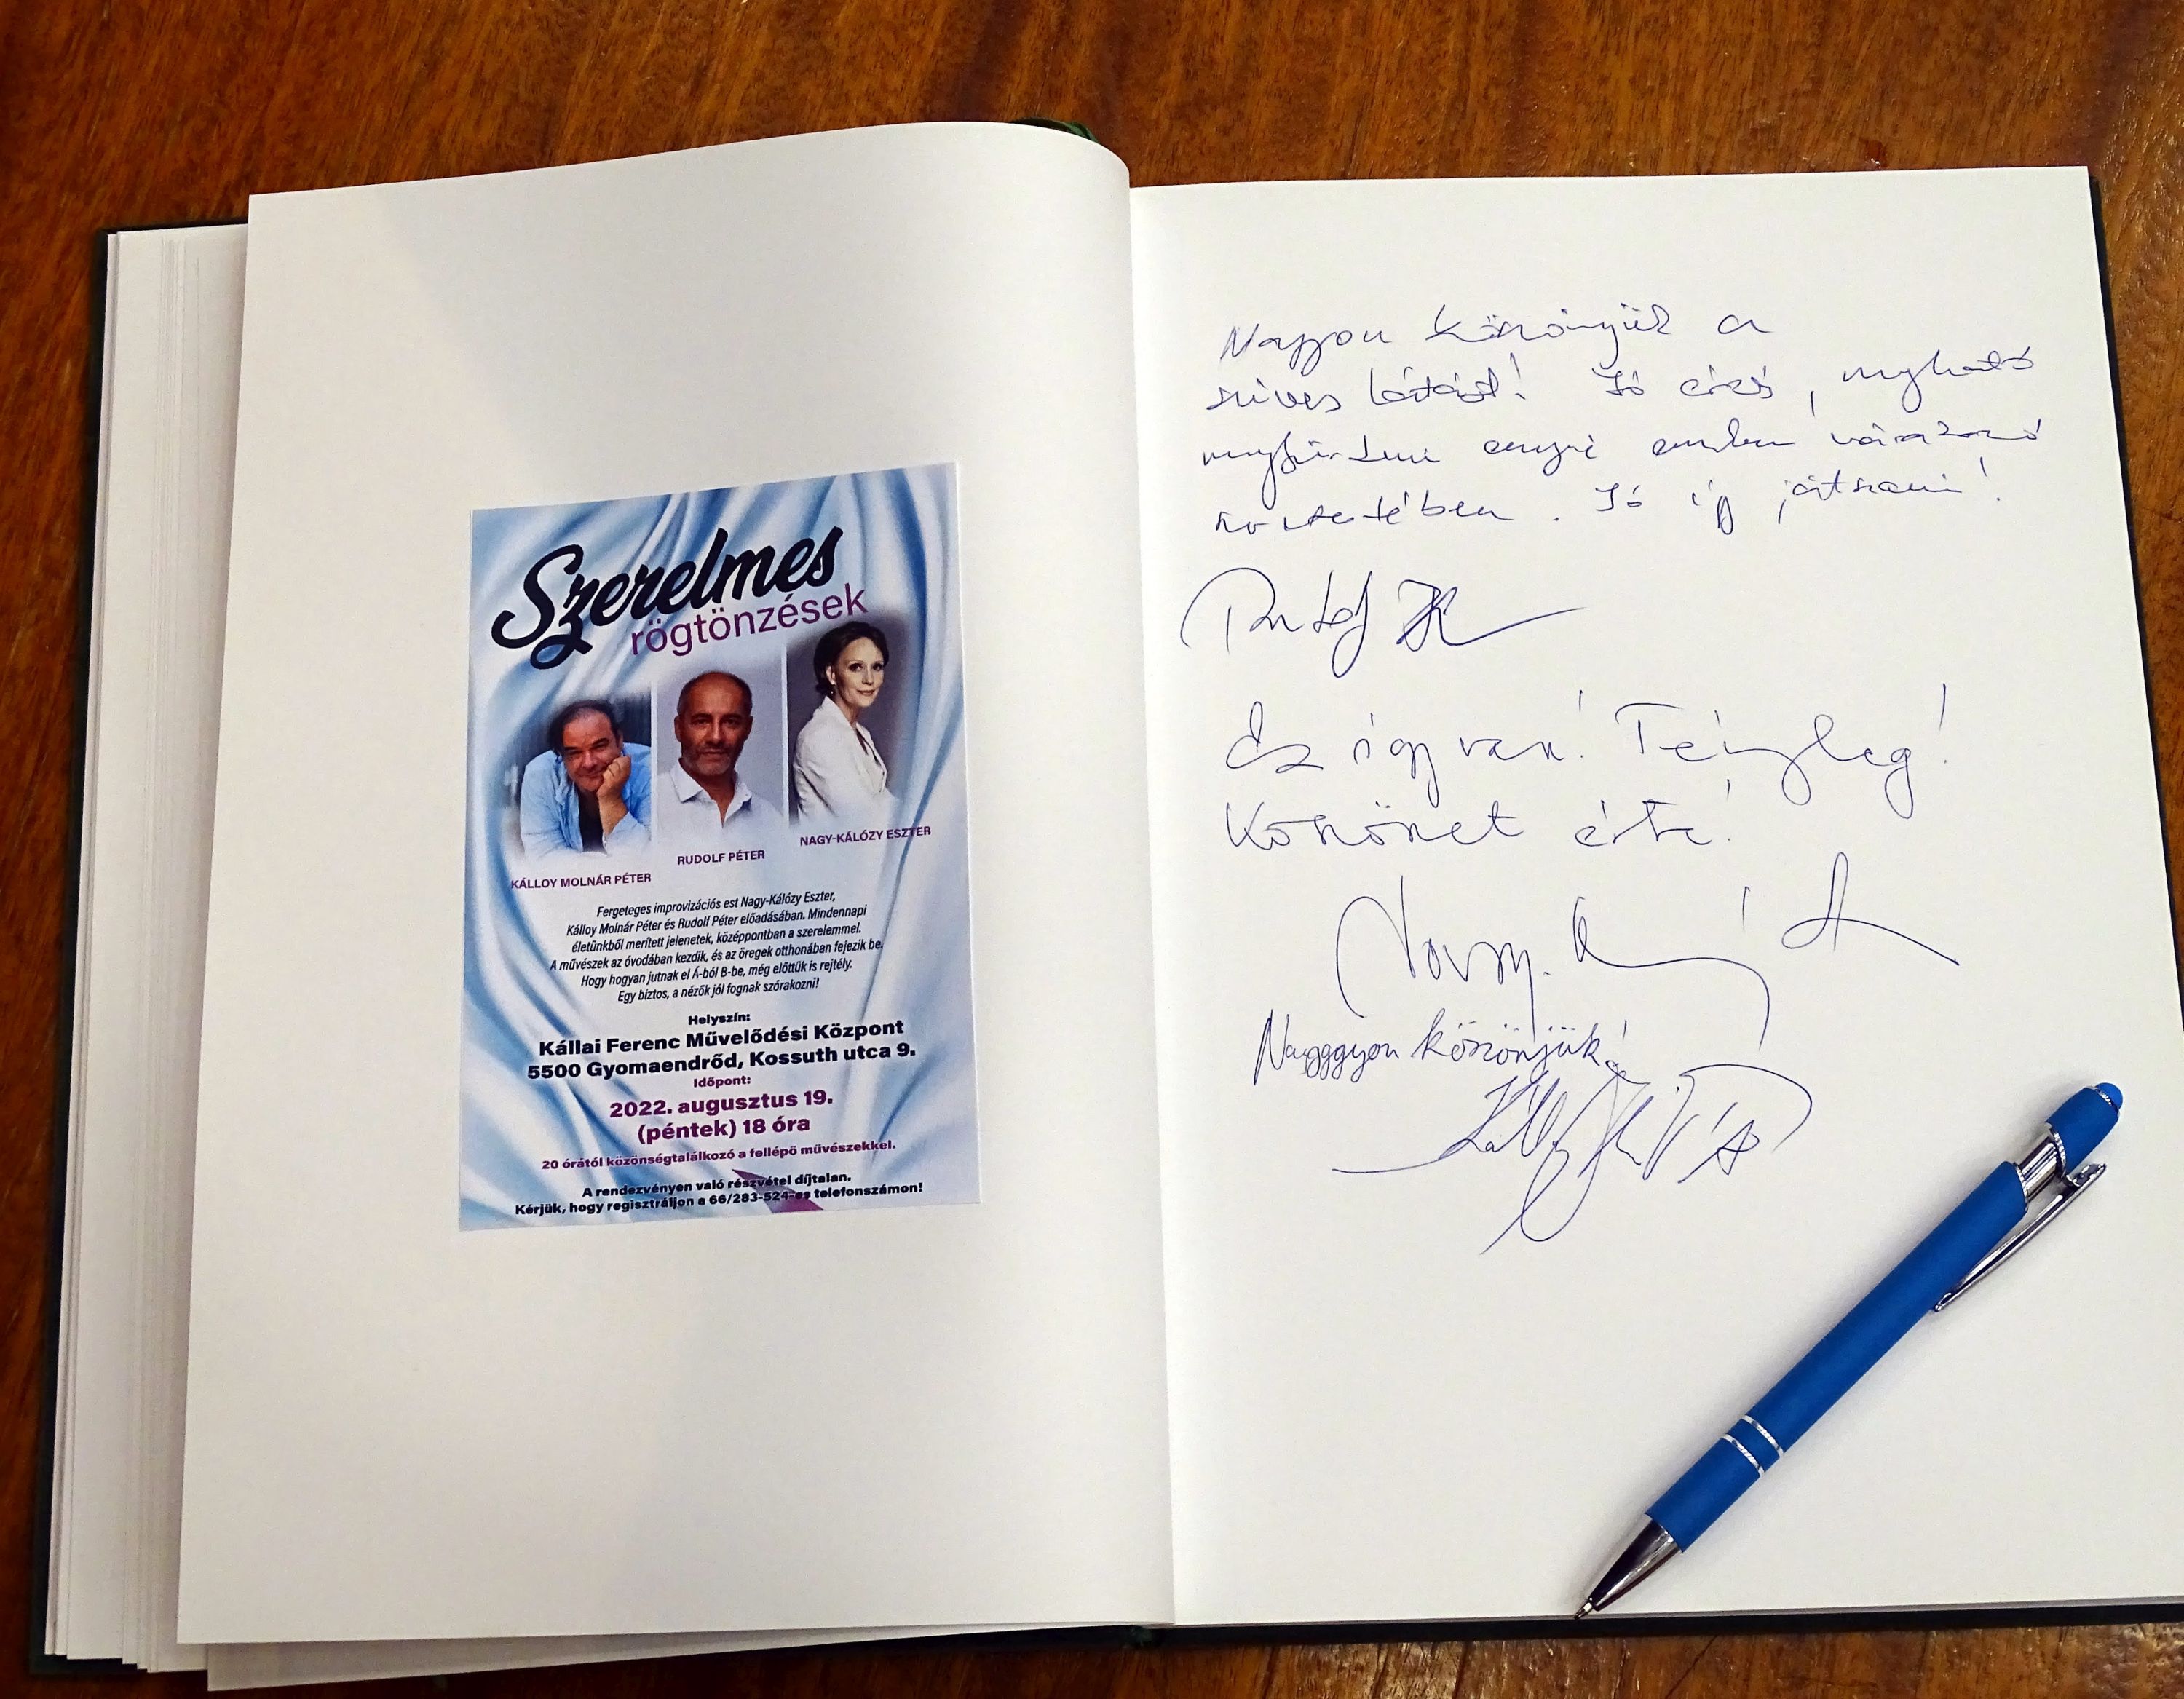 Szerelmes
rögtönzések
KÁLLOY MOLNÁR PÉTER
RUDOLF PÉTER
NAGY-KÁLÓZY ESZTER
Fergeteges improvizációs est Nagy-Kálózy Eszter,
Kálloy Molnár Péter és Rudolf Péter előadásában. Mindennapi
életünkből merített jelenetek, középpontban a szerelemmel.
A művészek az óvodában kezdik, és az öregek otthonában fejezik be.
Hogy hogyan jutnak el Á-ból B-be, még előttük is rejtély.
Egy biztos, a nézők jól fognak szórakozni!
Helyszín:
Kállai Ferenc Művelődési Központ
5500 Gyomaendrőd, Kossuth utca 9.
Időpont:
2022. augusztus 19.
(péntek) 18 óra
20 órától közönségtalálkozó a fellépő művészekkel.
A rendezvényen való részvétel díjtalan.
Kérjük, hogy regisztráljon a 66/283-524-es telefonszámon!
Nagyon köszönjük a
szíves látást! Jó érzés, megható
ennyi ember várakozó
szeretetében. Jó így játszani!
Rudolf
Ez így van! Tényleg!
Köszönet érte!
Nagggyon köszönjük!